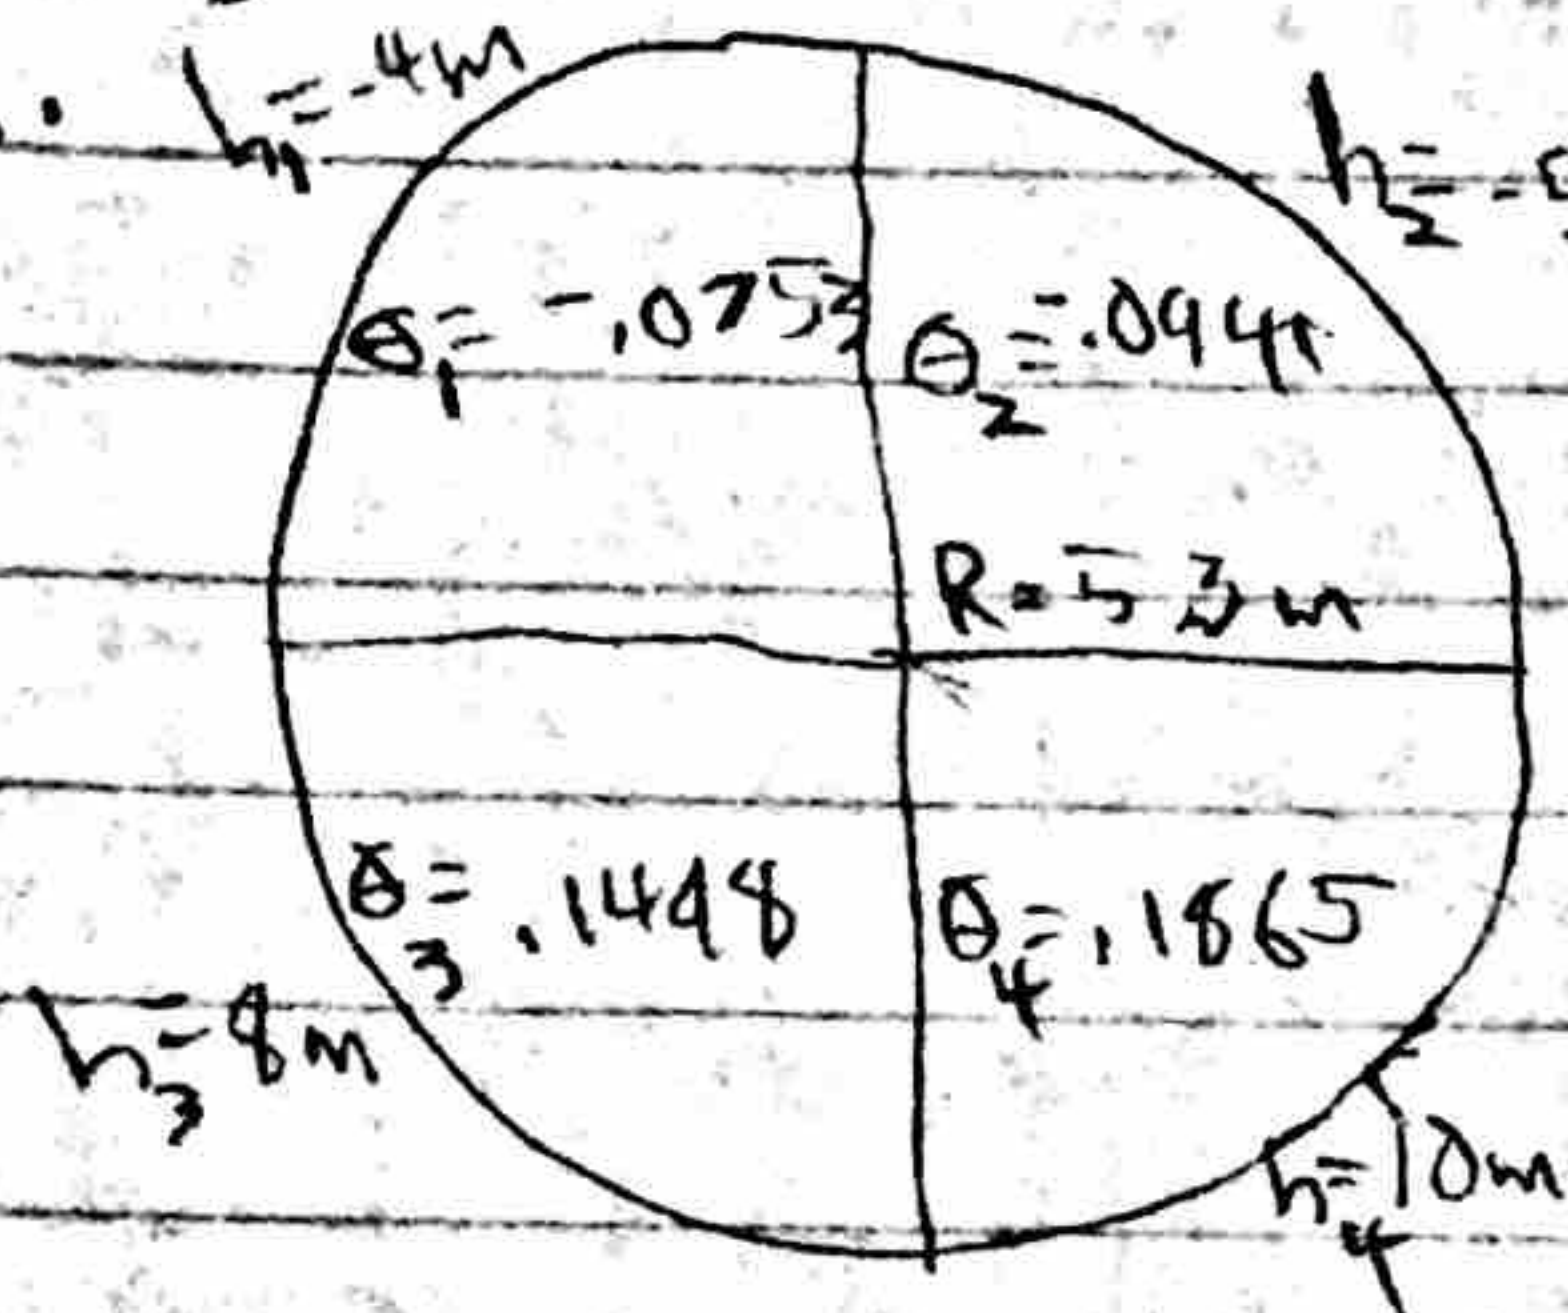 h₁=-4m
h₂=-
θ₁= -.0753
θ₂=-.0941
R=53m
θ₃=.1448
θ₄=.1865
h₃=8m
h₄=10m